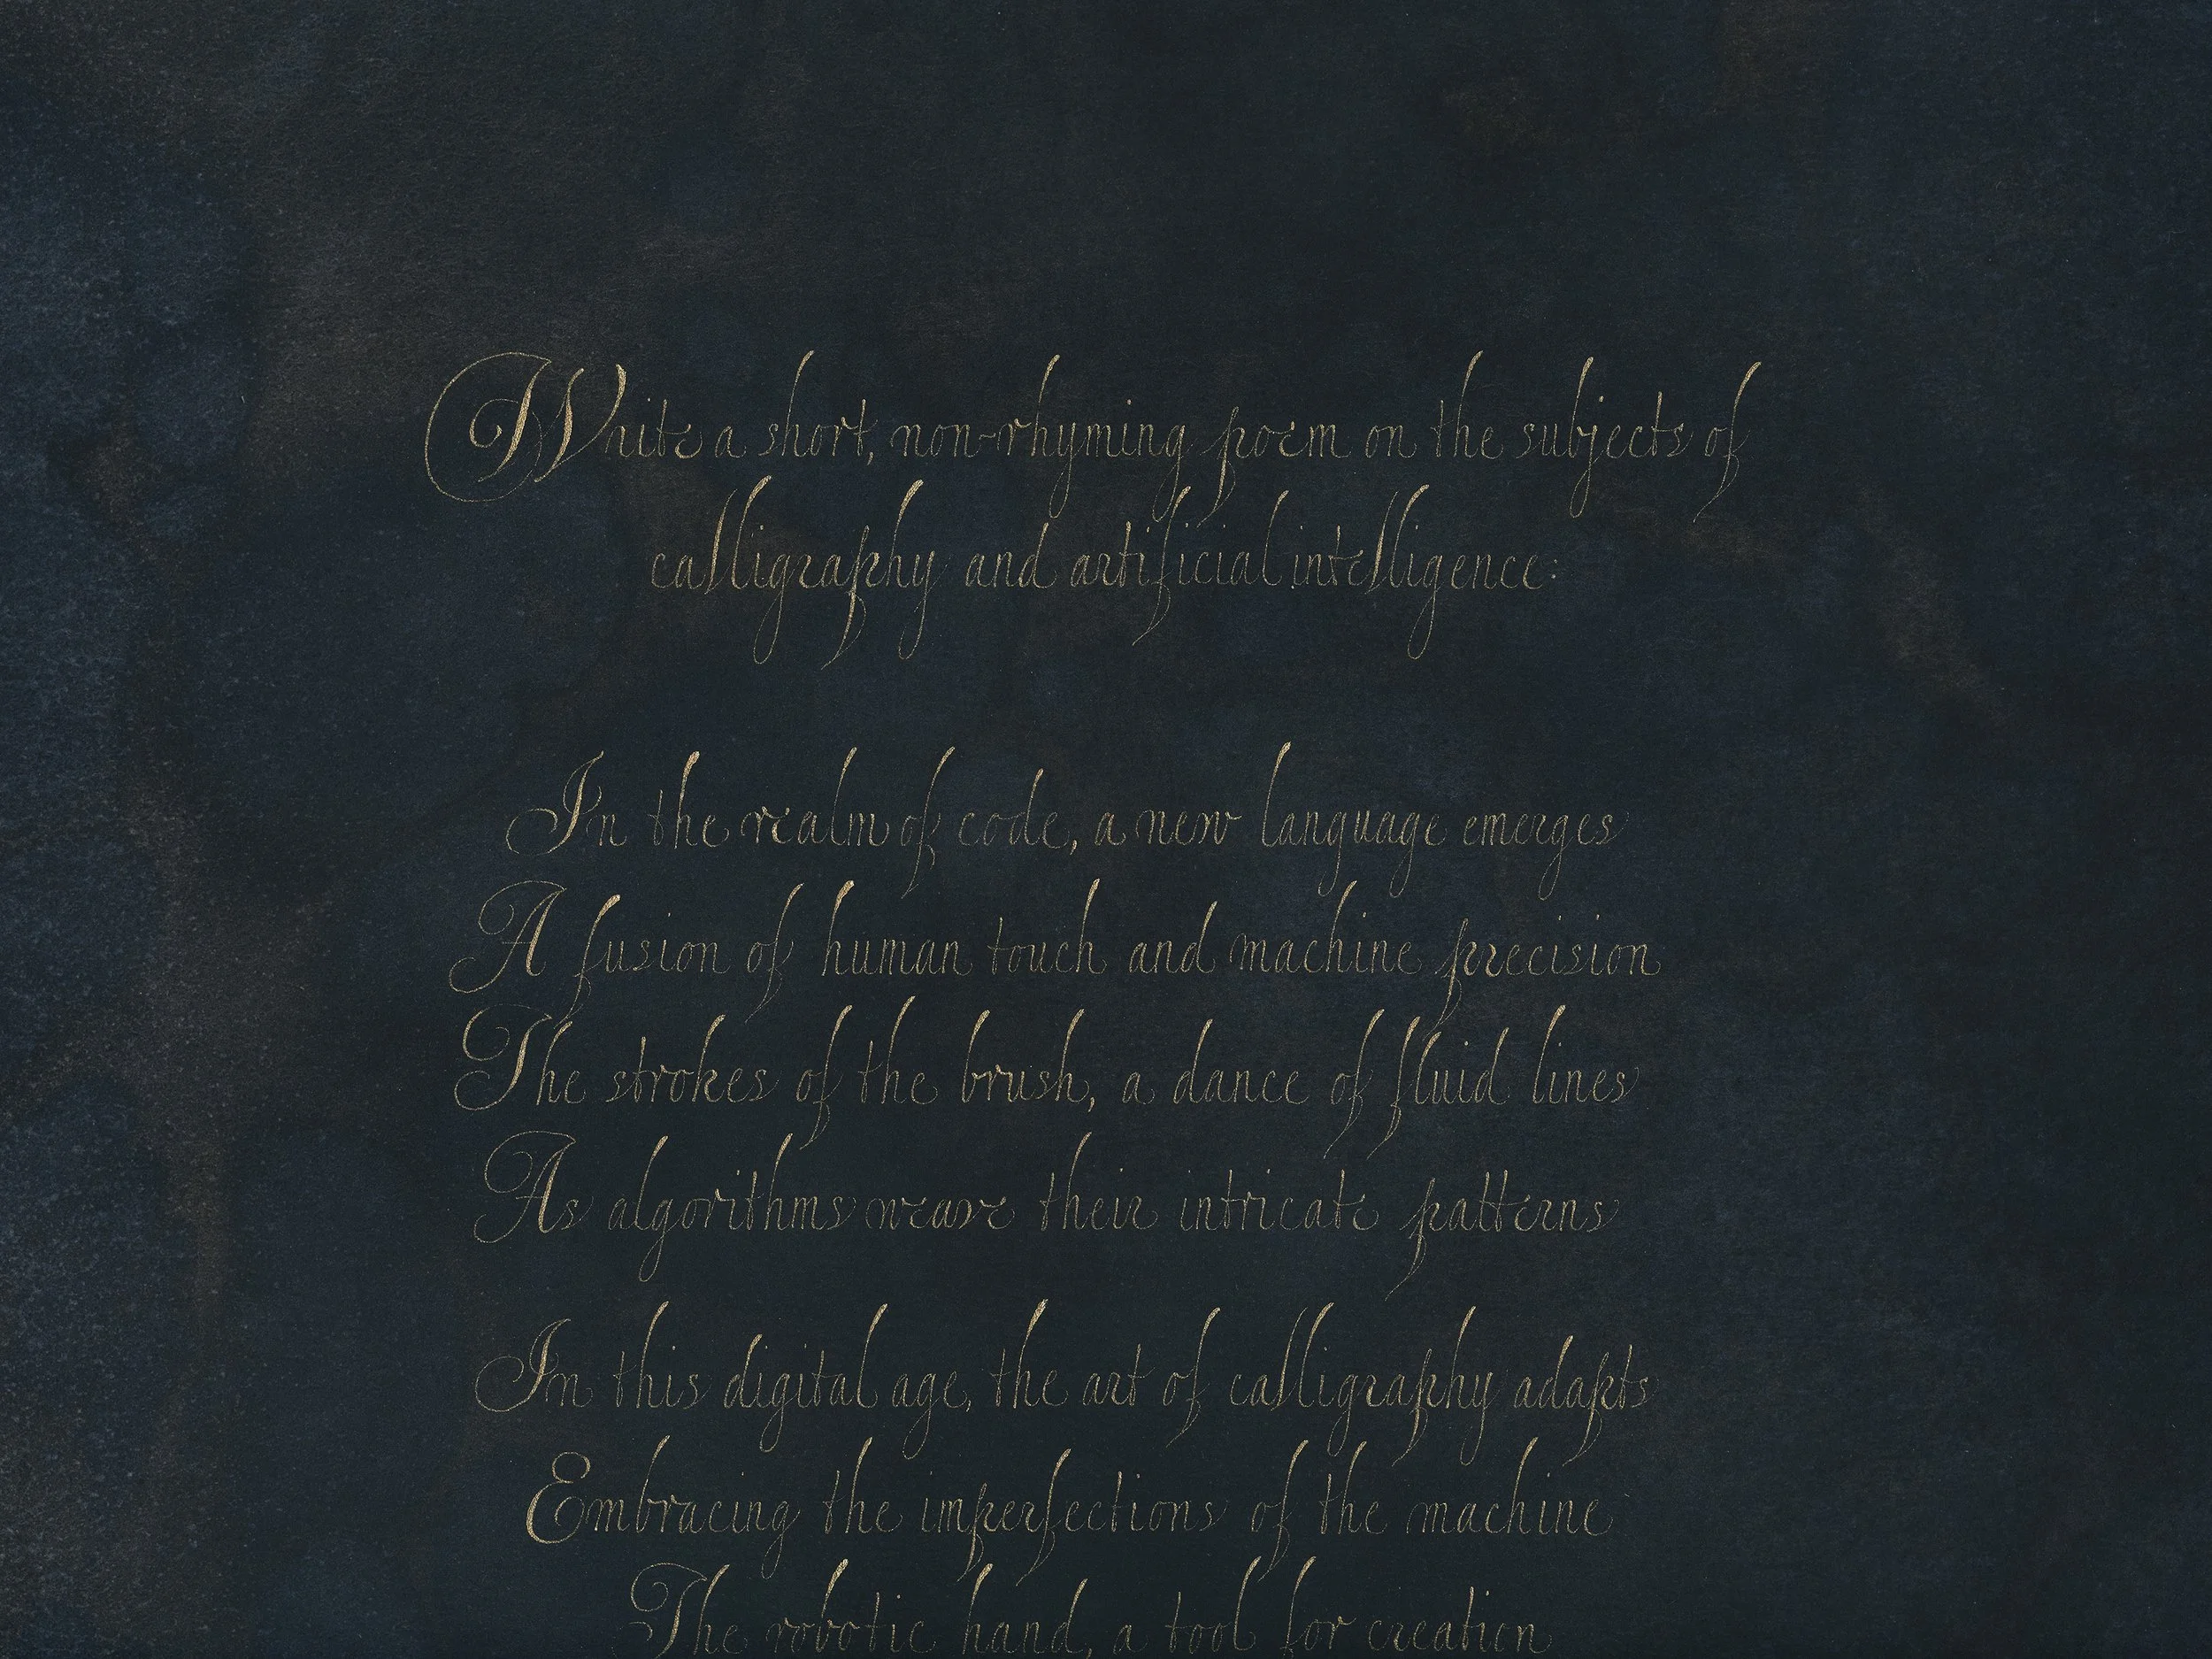 Write a short, non-rhyming poem on the subjects of
calligraphy and artificial intelligence:
In the realm of code, a new language emerges
A fusion of human touch and machine precision
The strokes of the brush, a dance of fluid lines
As algorithms weave their intricate patterns
In this digital age, the art of calligraphy adapts
Embracing the imperfections of the machine
The robotic hand, a tool for creation